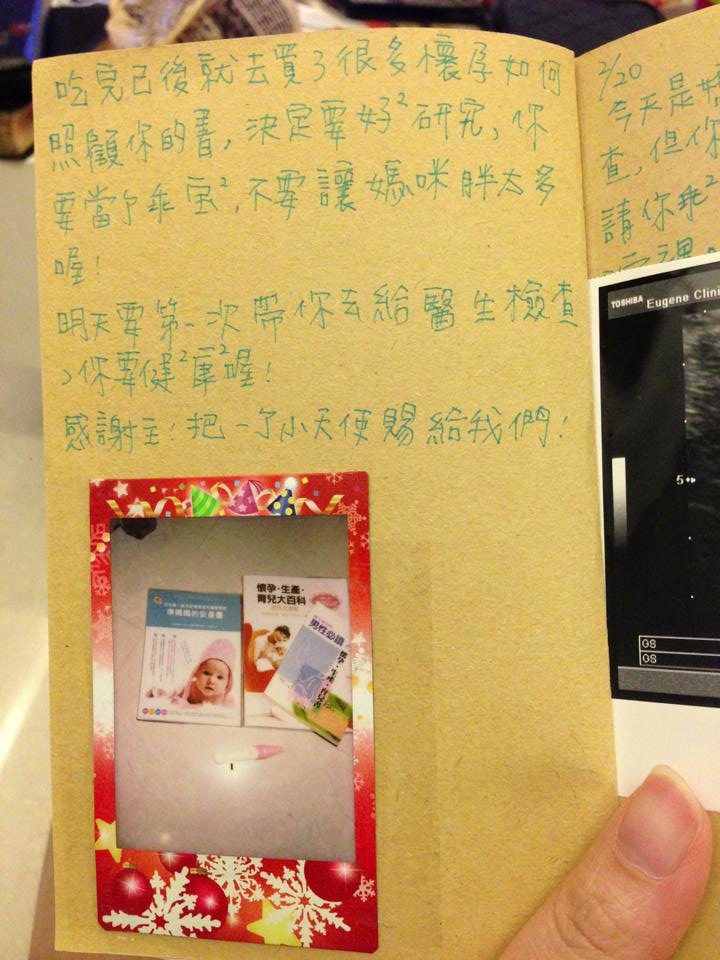 吃完已後就去買了很多懷孕如何
照顧你的書,決定要好²研究,你
要當个乖宝²,不要讓媽咪胖太多
喔!
明天要第一次帶你去給醫生檢查
,你要健²康²喔!
感謝主!把一个小天使賜給我們!
準媽媽的安產書
懷孕・生產・
育兒大百科
男性必讀
懷孕・生產・育兒書
2/20
今天是
查,但你
請你乖²
TOSHIBA Eugene Clini
5
GS
GS